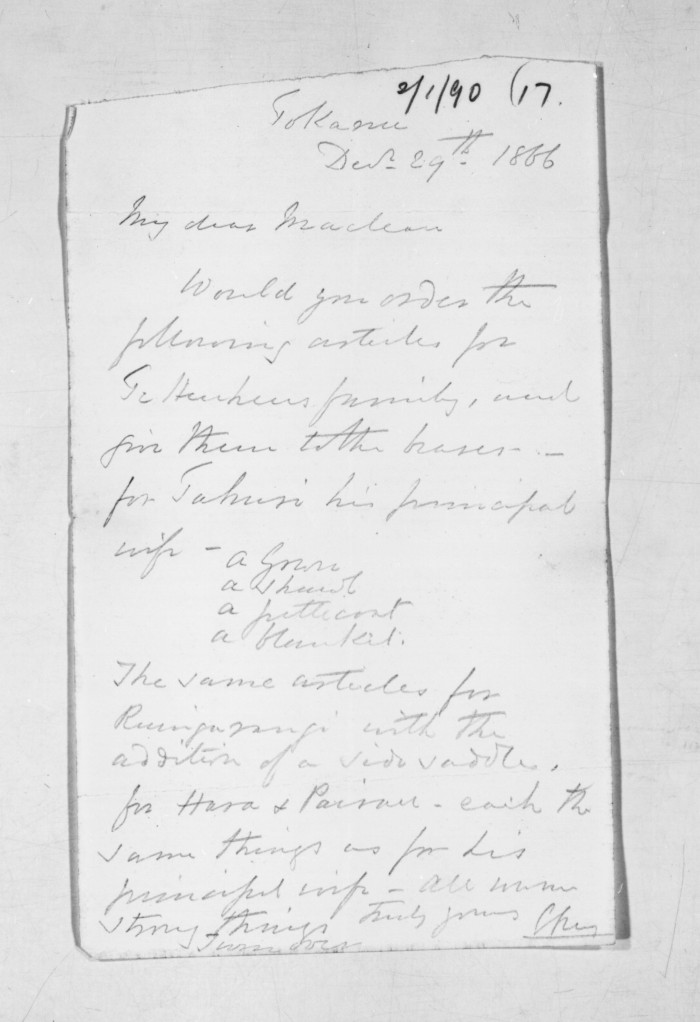 2/1/90 (17.
Tokanu
Decr. 29th. 1866
My dear Maclean
Would you order the
following articles for
Te Heuheus family, and
give them to the bearer -
for Tahuri his principal
wife - a gown
a shawl
a petticoat
a blanket.
The same articles for
Ruingarangi with the
addition of a side saddle,
for Hara & Pairau - each the
same things as for his
principal wife - All warm
strong things Truly yours
Turn over